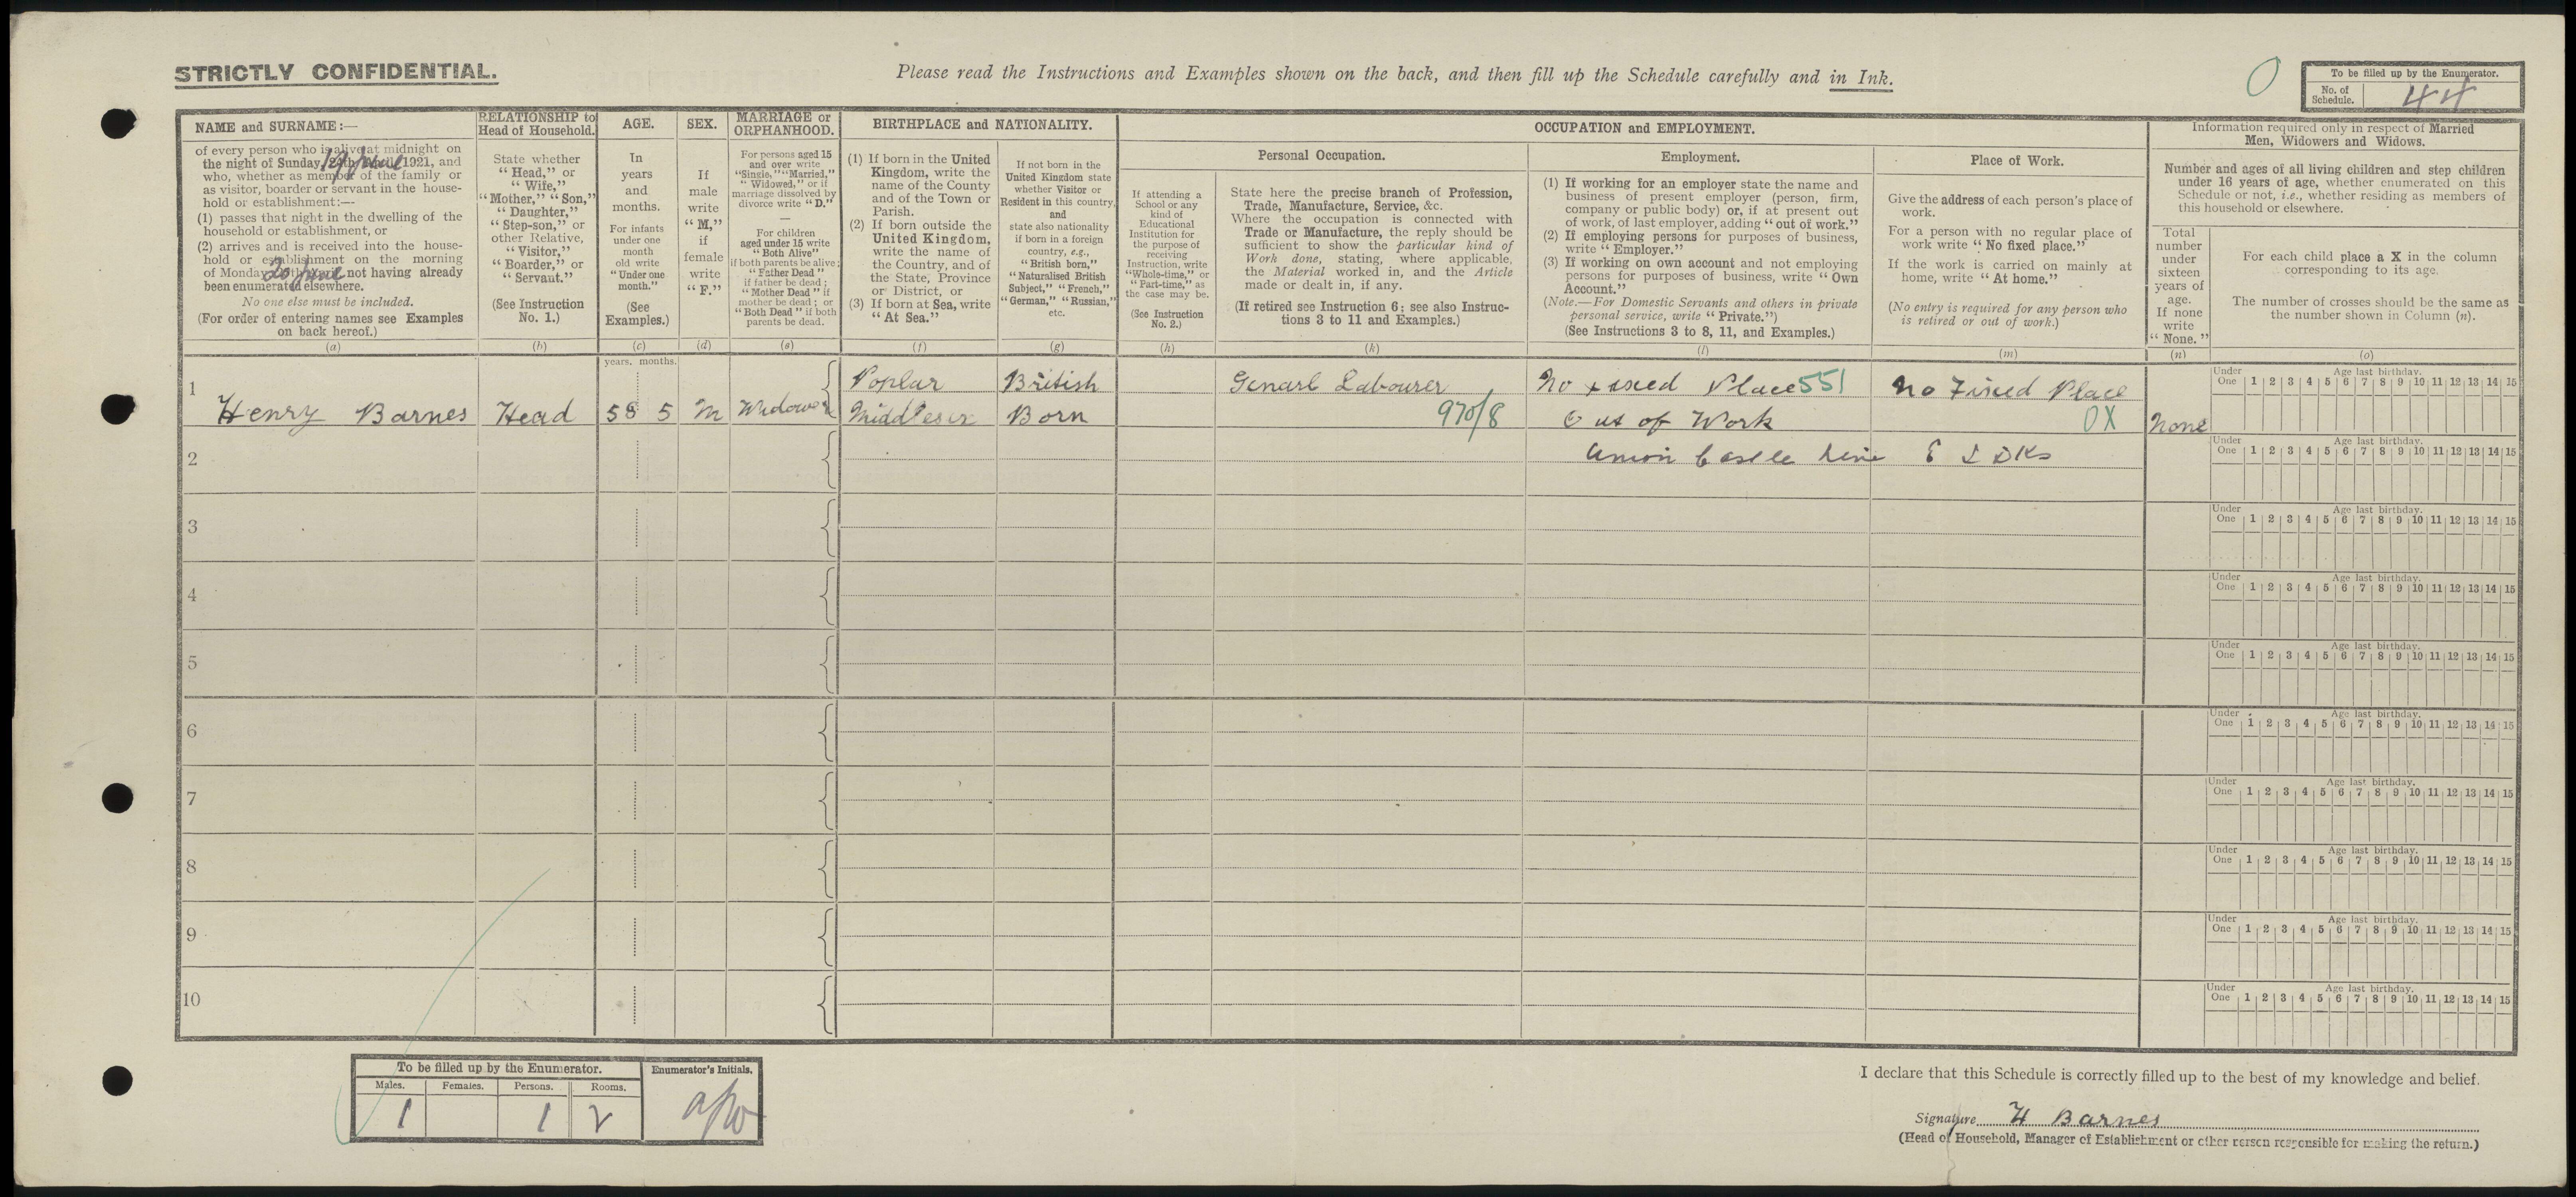 STRICTLY CONFIDENTIAL.
Please read the Instructions and Examples shown on the back, and then fill up the Schedule carefully and in Ink.
0
To be filled up by the Enumerator.
No. of Schedule.
44
NAME and SURNAME:—
of every person who is alive at midnight on
the night of Sunday, 24th April, 1921, and
19 June
who, whether as member of the family or
as visitor, boarder or servant in the house-
hold or establishment:—
(1) passes that night in the dwelling of the
household or establishment, or
(2) arrives and is received into the house-
hold or establishment on the morning
of Monday, 25th April, not having already
20 June
been enumerated elsewhere.
No one else must be included.
(For order of entering names see Examples
on back hereof.)
(a)
RELATIONSHIP to
Head of Household.
State whether
"Head," or
"Wife,"
"Mother," "Son,"
"Daughter,"
"Step-son," or
other Relative,
"Visitor,"
"Boarder," or
"Servant."
(See Instruction
No. 1.)
(b)
AGE.
In
years
and
months.
For infants
under one
month
old write
"Under one
month."
(See
Examples.)
(c)
SEX.
If
male
write
"M,"
if
female
write
"F."
(d)
MARRIAGE or
ORPHANHOOD.
For persons aged 15
and over write
"Single," "Married,"
"Widowed," or if
marriage dissolved by
divorce write "D."
—
For children
aged under 15 write
"Both Alive"
if both parents be alive;
"Father Dead"
if father be dead;
"Mother Dead" if
mother be dead; or
"Both Dead" if both
parents be dead.
(e)
BIRTHPLACE and NATIONALITY.
(1) If born in the United
Kingdom, write the
name of the County
and of the Town or
Parish.
(2) If born outside the
United Kingdom,
write the name of
the Country, and of
the State, Province
or District, or
(3) If born at Sea, write
"At Sea."
(f)
If not born in the
United Kingdom state
whether Visitor or
Resident in this country,
and
state also nationality
if born in a foreign
country, e.g.,
"British born,"
"Naturalised British
Subject," "French,"
"German," "Russian,"
etc.
(g)
OCCUPATION and EMPLOYMENT.
Personal Occupation.
If attending a
School or any
kind of
Educational
Institution for
the purpose of
receiving
Instruction, write
"Whole-time," or
"Part-time," as
the case may be.
(See Instruction
No. 2.)
(h)
State here the precise branch of Profession,
Trade, Manufacture, Service, &c.
Where the occupation is connected with
Trade or Manufacture, the reply should be
sufficient to show the particular kind of
Work done, stating, where applicable,
the Material worked in, and the Article
made or dealt in, if any.
(If retired see Instruction 6; see also Instruc-
tions 3 to 11 and Examples.)
(k)
Employment.
(1) If working for an employer state the name and
business of present employer (person, firm,
company or public body) or, if at present out
of work, of last employer, adding "out of work."
(2) If employing persons for purposes of business,
write "Employer."
(3) If working on own account and not employing
persons for purposes of business, write "Own
Account."
(Note.—For Domestic Servants and others in private
personal service, write "Private.")
(See Instructions 3 to 8, 11, and Examples.)
(l)
Place of Work.
Give the address of each person's place of
work.
For a person with no regular place of
work write "No fixed place."
If the work is carried on mainly at
home, write "At home."
(No entry is required for any person who
is retired or out of work.)
(m)
Information required only in respect of Married
Men, Widowers and Widows.
Number and ages of all living children and step children
under 16 years of age, whether enumerated on this
Schedule or not, i.e., whether residing as members of
this household or elsewhere.
Total
number
under
sixteen
years of
age.
If none
write
"None."
(n)
For each child place a X in the column
corresponding to its age.
The number of crosses should be the same as
the number shown in Column (n).
(o)
years. months.
1
Henry Barnes
Head
58 5
M
Widower
Poplar
Middlesex
British
Born
Genarl Labourer
970/8
No fixed Place 551
Out of Work
Union Castle Line
No Fixed Place
OX
E I DKs
None
Under One
Age last birthday.
1 2 3 4 5 6 7 8 9 10 11 12 13 14 15
2
Under One
Age last birthday.
1 2 3 4 5 6 7 8 9 10 11 12 13 14 15
3
Under One
Age last birthday.
1 2 3 4 5 6 7 8 9 10 11 12 13 14 15
4
Under One
Age last birthday.
1 2 3 4 5 6 7 8 9 10 11 12 13 14 15
5
Under One
Age last birthday.
1 2 3 4 5 6 7 8 9 10 11 12 13 14 15
6
Under One
Age last birthday.
1 2 3 4 5 6 7 8 9 10 11 12 13 14 15
7
Under One
Age last birthday.
1 2 3 4 5 6 7 8 9 10 11 12 13 14 15
8
Under One
Age last birthday.
1 2 3 4 5 6 7 8 9 10 11 12 13 14 15
9
Under One
Age last birthday.
1 2 3 4 5 6 7 8 9 10 11 12 13 14 15
10
Under One
Age last birthday.
1 2 3 4 5 6 7 8 9 10 11 12 13 14 15
To be filled up by the Enumerator.
Males. Females. Persons. Rooms.
1 1 2
Enumerator's Initials.
I declare that this Schedule is correctly filled up to the best of my knowledge and belief.
Signature H Barnes
(Head of Household, Manager of Establishment or other person responsible for making the return.)